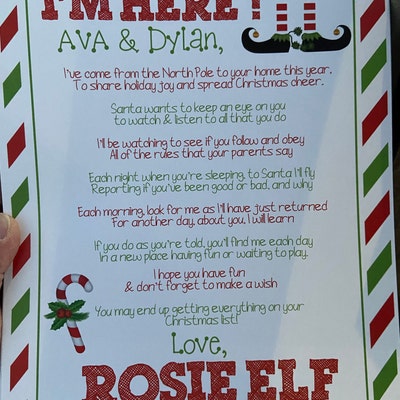 I'M HERE!
AVA & Dylan,
I've come from the North Pole to your home this year,
To share holiday joy and spread Christmas cheer.
Santa wants to keep an eye on you
to watch & listen to all that you do
I'll be watching to see if you follow and obey
All of the rules that your parents say
Each night when you're sleeping, to Santa I'll fly
Reporting if you've been good or bad, and why
Each morning, look for me as I'll have just returned
For another day, about you, I will learn
If you do as you're told, you'll find me each day
In a new place having fun or waiting to play.
I hope you have fun
& don't forget to make a wish
You may end up getting everything on your
Christmas list!
Love,
ROSIE ELF